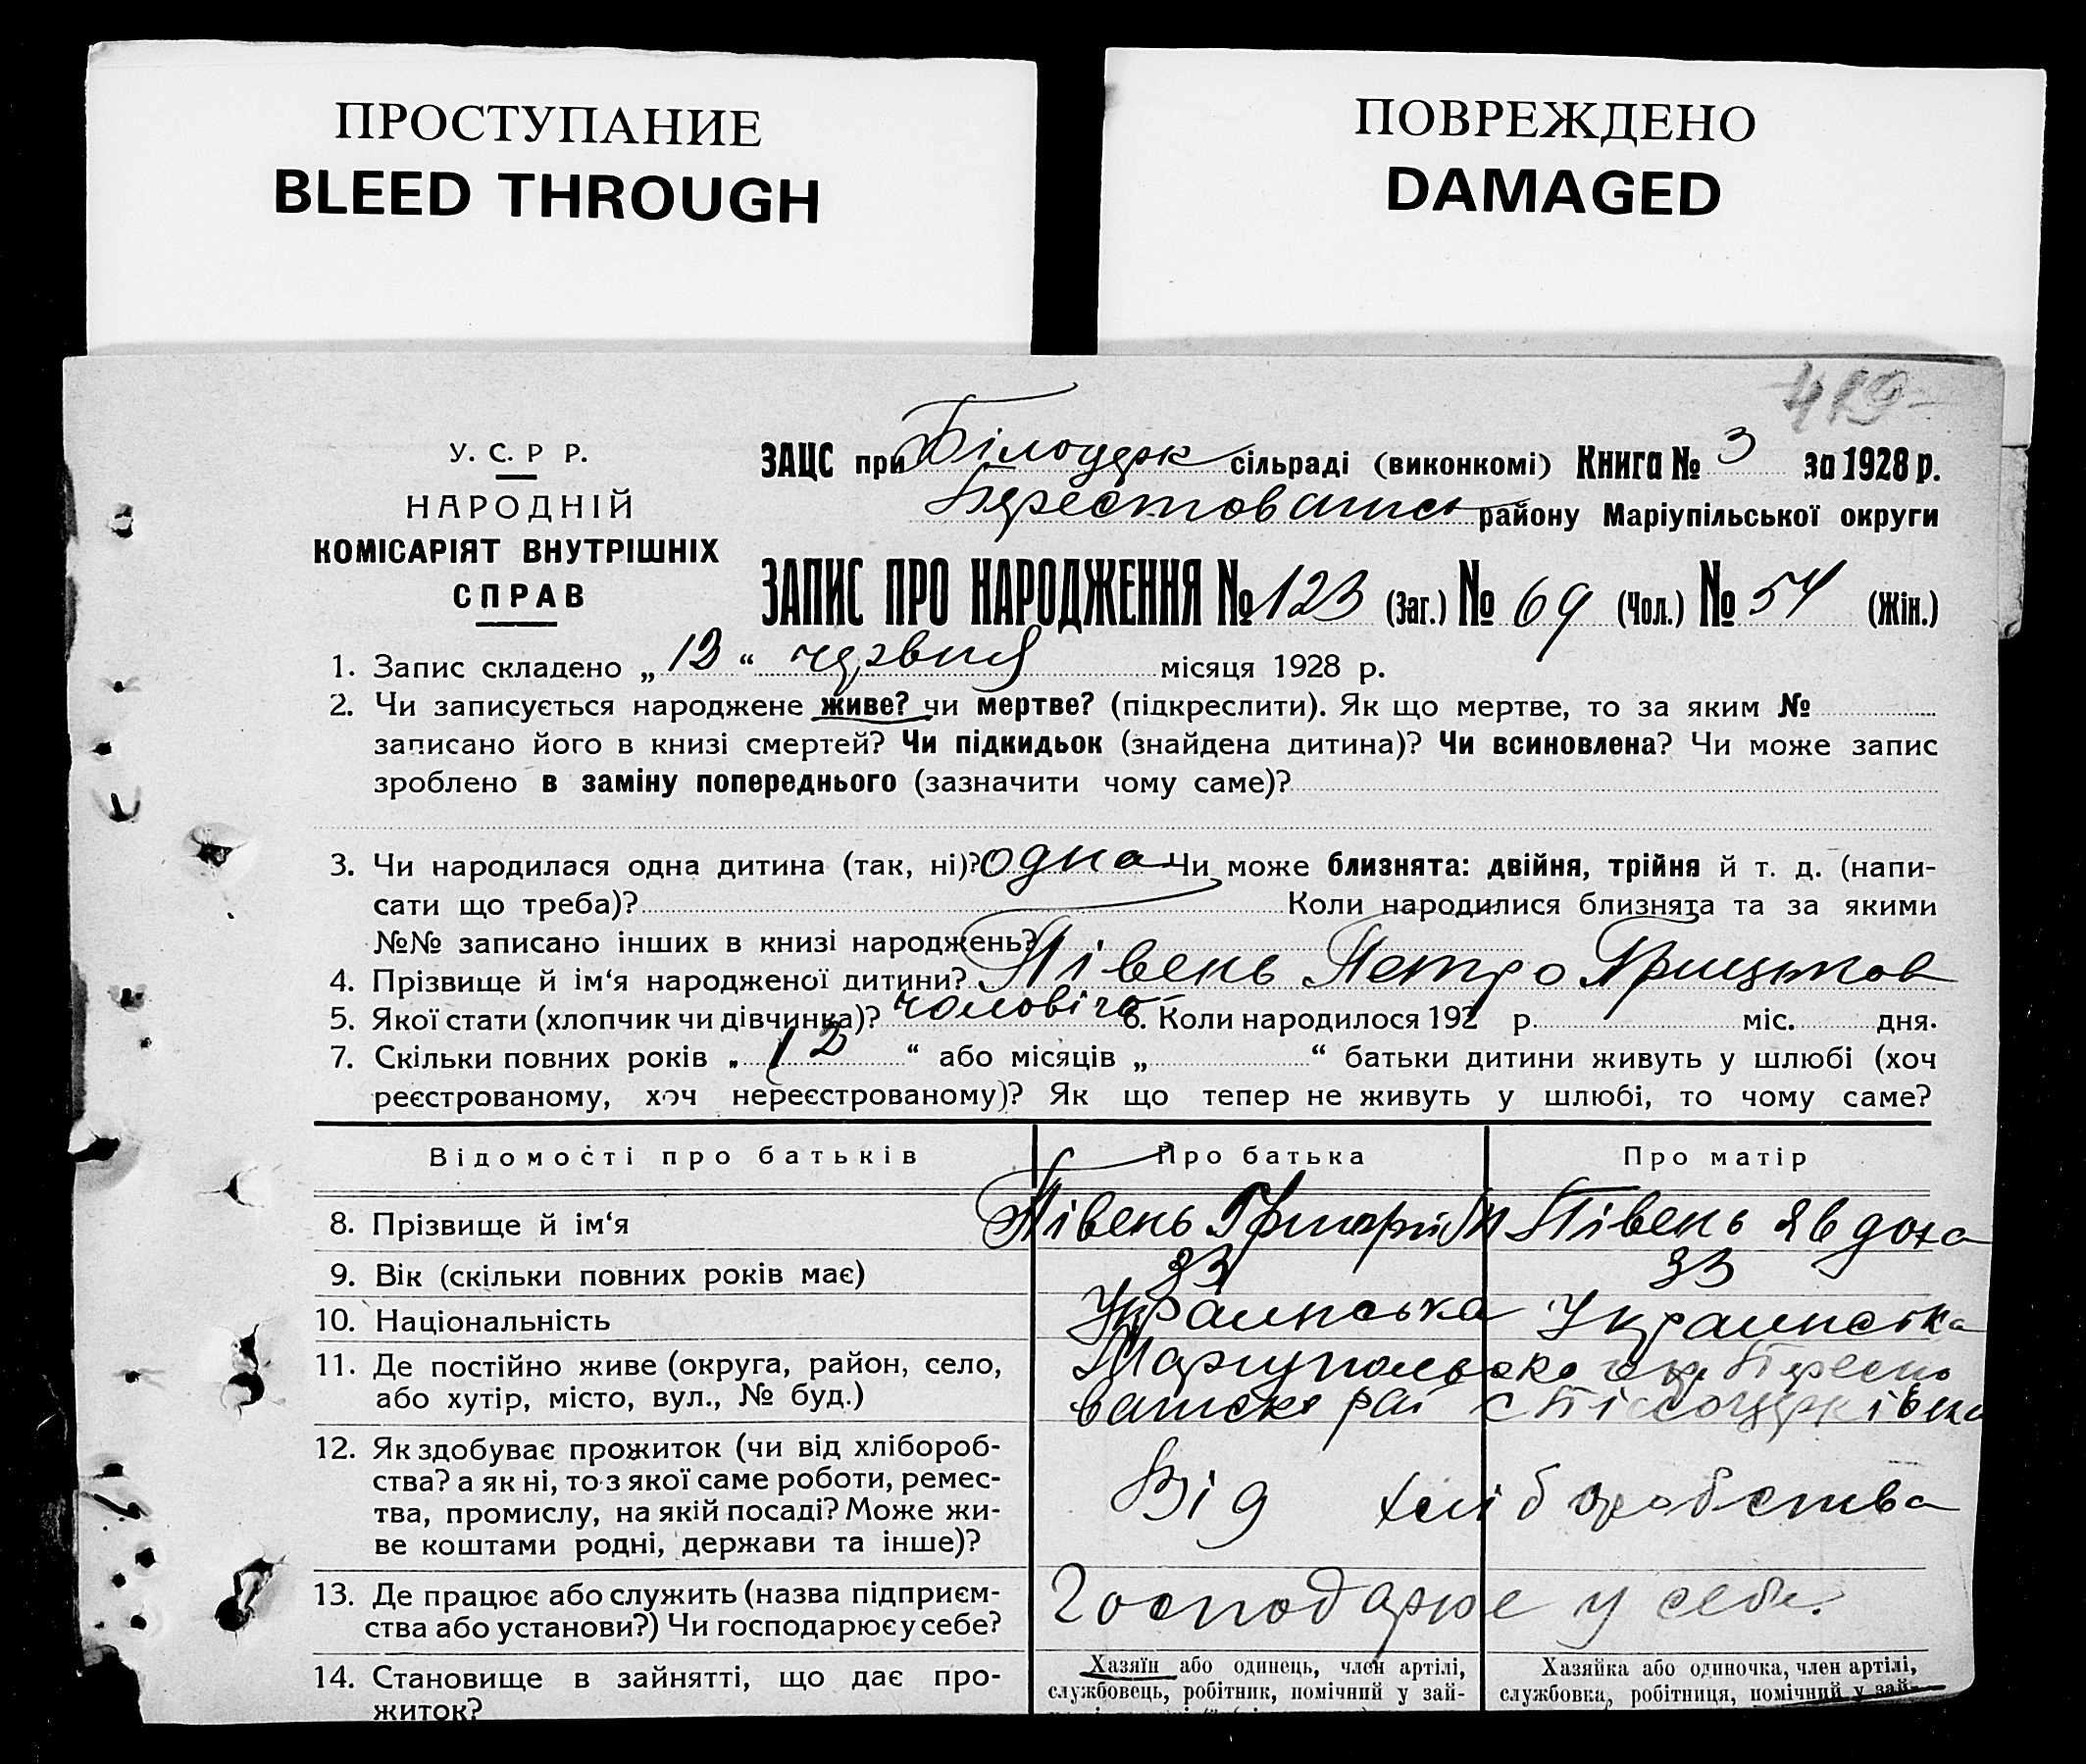 ПРОСТУПАНИЕ
BLEED THROUGH
ПОВРЕЖДЕНО
DAMAGED
У. С. Р Р.
НАРОДНІЙ
КОМІСАРІЯТ ВНУТРІШНІХ
СПРАВ
ЗАЦС при Білоцерк сільраді (виконкомі) Книга № 3 за 1928 р.
району Маріупільської округи
ЗАПИС ПРО НАРОДЖЕННЯ № 123 (Заг.) № 69 (Чол.) № 54 (Жін.)
1. Запис складено „ 12 “ червня місяця 1928 р.
2. Чи записується народжене живе? чи мертве? (підкреслити). Як що мертве, то за яким №
записано його в книзі смертей? Чи підкидьок (знайдена дитина)? Чи всиновлена? Чи може запис
зроблено в заміну попереднього (зазначити чому саме)?
3. Чи народилася одна дитина (так, ні)? одна Чи може близнята: двійня, трійня й т. д. (напи-
сати що треба)? Коли народилися близнята та за якими
№№ записано інших в книзі народжень?
4. Прізвище й ім‘я народженої дитини? Півень Петро Грицьков
5. Якої стати (хлопчик чи дівчинка)? чоловіча 6. Коли народилося 192 р. міс. дня.
7. Скільки повних років „ 12 “ або місяців „ “ батьки дитини живуть у шлюбі (хоч
реєстрованому, хоч нереєстрованому)? Як що тепер не живуть у шлюбі, то чому саме?
Відомості про батьків Про батька Про матір
8. Прізвище й ім‘я Півень Григорій Півень Явдоха
9. Вік (скільки повних років має) 33 33
10. Національність Украинська Украинська
11. Де постійно живе (округа, район, село, Маріупольско окр Бересто
або хутір, місто, вул., № буд.) ватско рай с Білоцерківка
12. Як здобуває прожиток (чи від хлібороб-
ства? а як ні, то з якої саме роботи, ремес-
тва, промислу, на якій посаді? Може жи- Від хліборобства
ве коштами родні, держави та інше)?
13. Де працює або служить (назва підприєм- Господарює у себе.
ства або установи?) Чи господарює у себе?
14. Становище в зайнятті, що дає про- Хазяїн або одинець, член артілі, Хазяйка або одиночка, член артілі,
житок? службовець, робітник, помічний у зай- службовка, робітниця, помічний у зай-